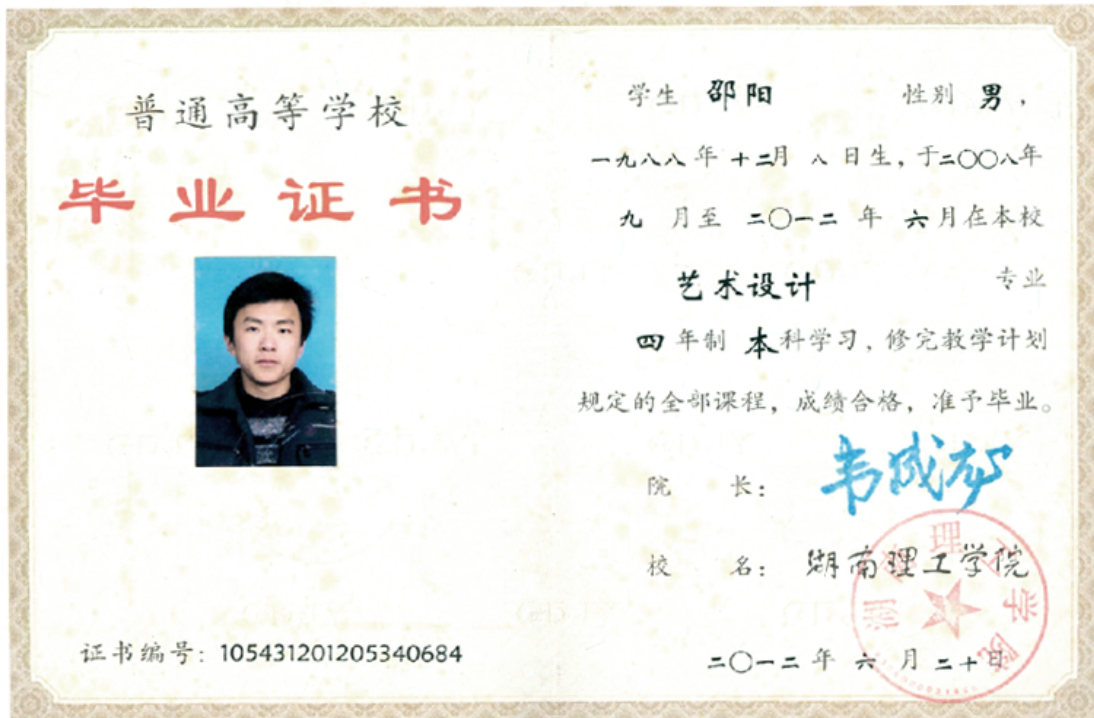 普通高等学校
毕业证书
证书编号：105431201205340684
学生 邵阳 性别 男，
一九八八年十二月八日生，于二〇〇八年
九月至二〇一二年六月在本校
艺术设计 专业
四年制本科学习，修完教学计划
规定的全部课程，成绩合格，准予毕业。
院长：
校名：湖南理工学院
湖南理工学院
二〇一二年六月二十日